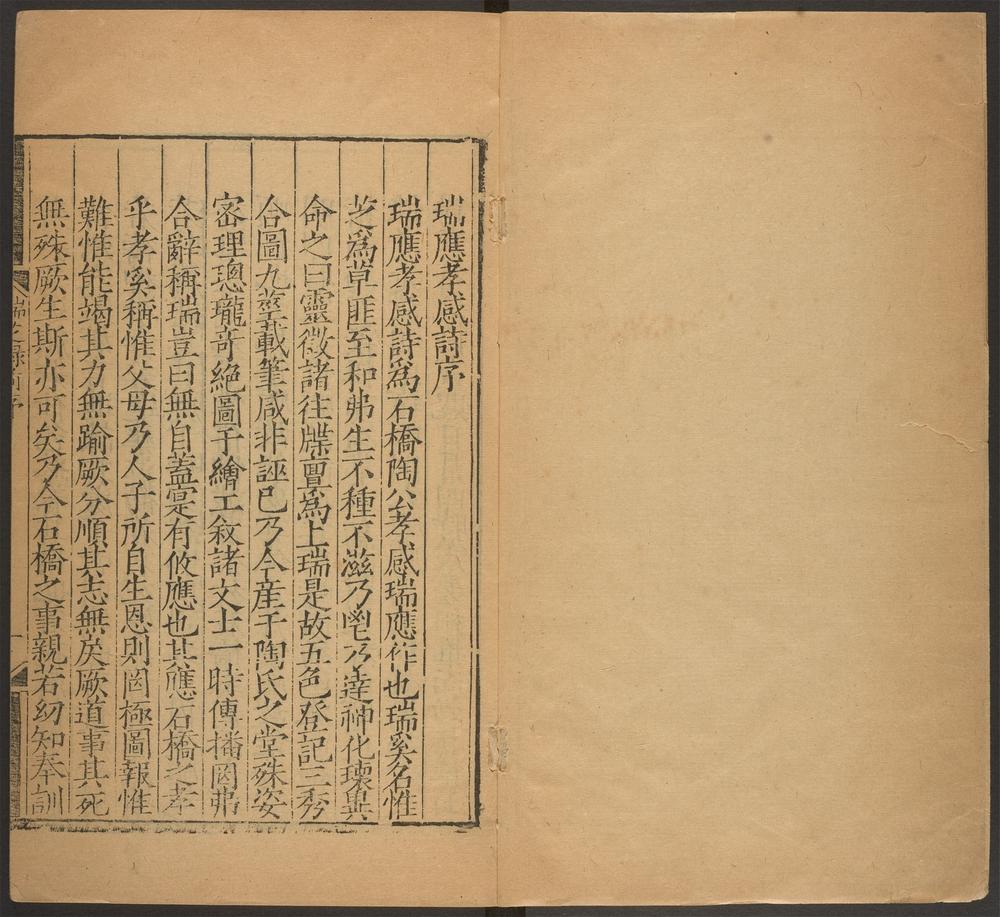 瑞應孝感詩序
瑞應孝感詩爲石橋陶公孝感瑞應作也瑞奚名惟
芝爲草匪至和弗生不種不滋乃鬯乃達神化瓌異
命之曰靈徵諸往牒亶爲上瑞是故五色登記三秀
合圖九莖載筆咸非誣已乃今産于陶氏之堂殊姿
密理璁瓏奇絕圖于繪工敘諸文士一時傳播罔弗
合辭稱瑞豈曰無自蓋寔有攸應也其應石橋之孝
乎孝奚稱惟父母乃人子所自生恩則罔極圖報惟
難惟能竭其力無踰厥分順其志無戾厥道事其死
無殊厥生斯亦可矣乃今石橋之事親若幼知奉訓
瑞芝錄前序
一